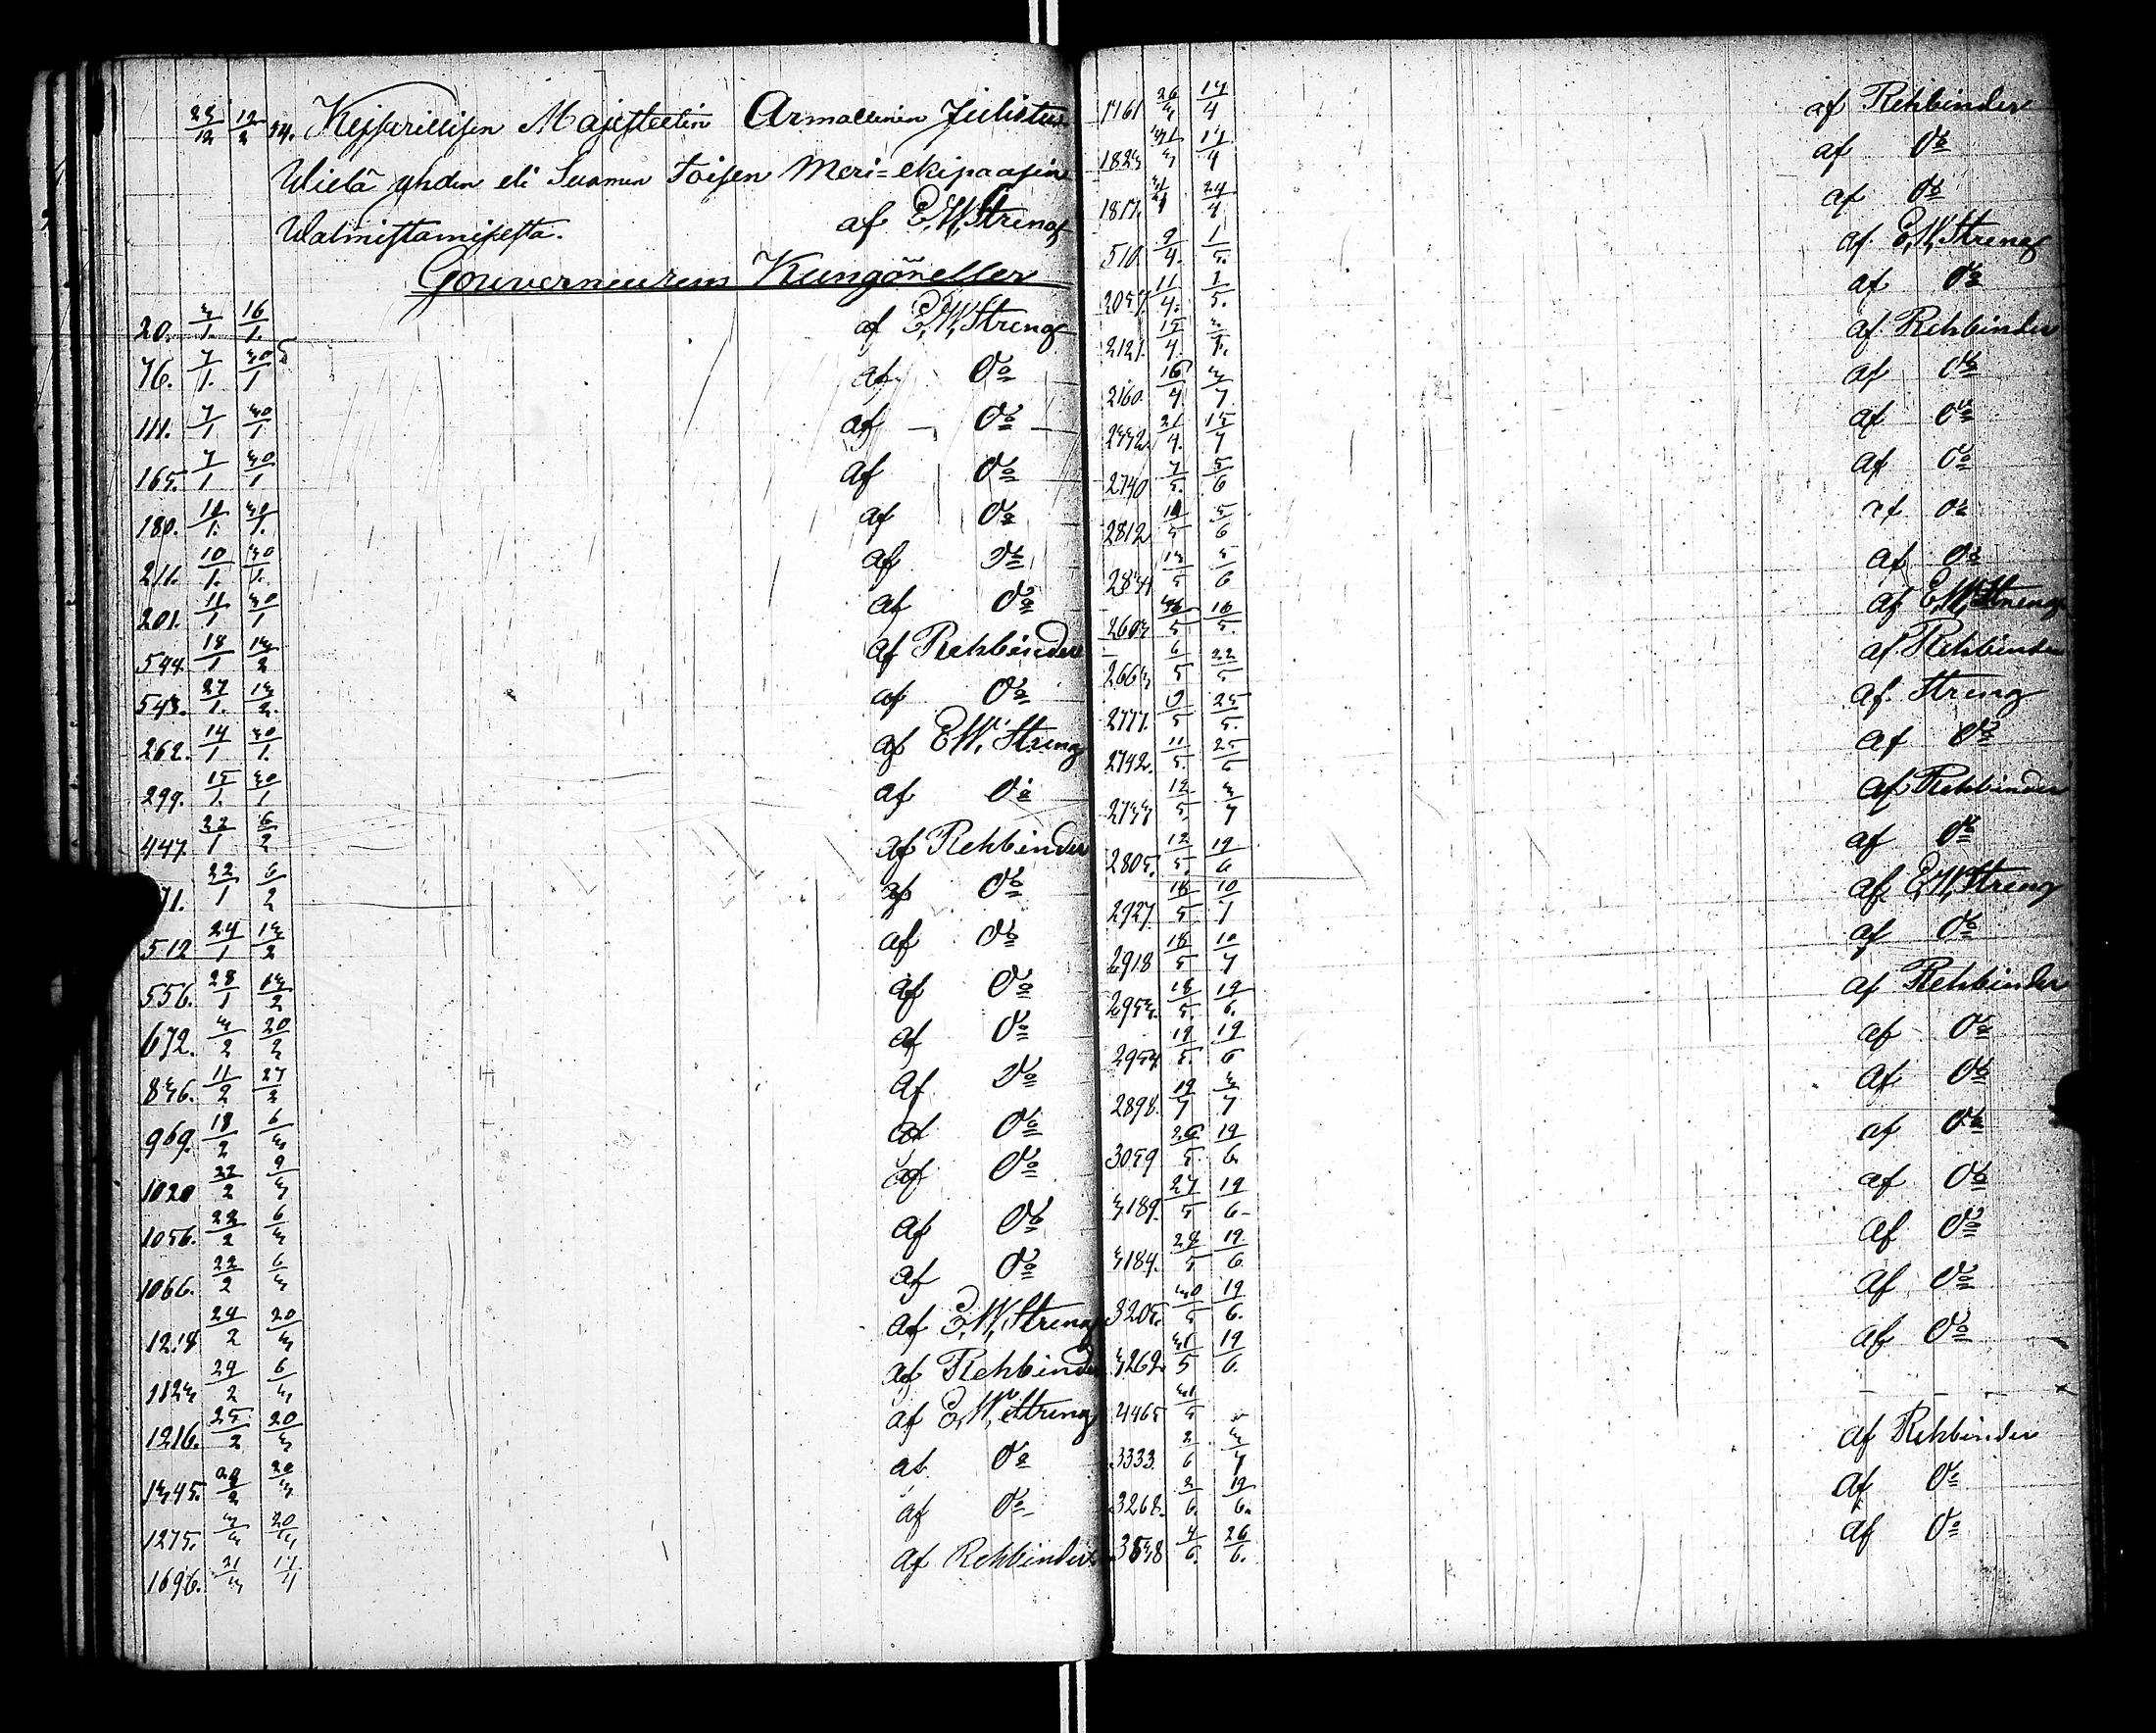 23/12 12/2 54. Kejsarillisen Majesteetin Armollinen Julistus
Wielä yhden eli Suomen Toisen Meri=ekipaasin
Walmistamisesta. af E. W. Streng
Gouverneurens Kungörelser
20. 3/1. 16/1. af E. W. Streng
76. 7/1. 30/1 af Do
111. 7/1 30/1 af Do
165. 7/1 30/1 af Do
180. 10/1. 30/1. af Do
211. 10/1. 30/1. af Do
201. 11/1 30/1 af Do
544. 18/1 13/2 af Rehbinder
543. 27/1. 13/2. af Do
262. 14/1 30/1. af E. W. Streng
299. 15/1. 30/1. af Do
447. 22/1 6/2 af Rehbinder
71. 22/1 6/2 af Do
512 24/1 13/2 af Do
556. 28/1 13/2 af Do
672. 3/2 20/2 af Do
836. 11/2 27/2 af Do
969. 18/2 6/3 af Do
1020 22/2 9/3 af Do
1056. 22/2 6/3 af Do
1066. 22/2 6/3 af Do
1214 24/2 20/3 af E. W. Streng
1123 24/2 6/3 af Rehbinder
1216. 25/2 20/3 af E. W. Streng
1345. 29/2 20/3 af Do
1275. 3/3 20/3 af Do
1696. 21/3 17/4 af Rehbinder
1761 26/3 17/4 af Rehbinder
1823 31/3 17/4 af Do
1817. 24/4 af Do
510. 9/4. 1/5. af E. W. Streng
2057. 11/4. 2/5. af Do
2121. 15/4. af Rehbinder
2160. 16/4. 3/7. af Do
2332. 21/4. 15/7 af Do
2740 7/5. 5/6 af Do
2812 10/5 5/6 af Do
2834 13/5 5/6 af Do
2603 16/5. af E. W. Streng
2663 6/5 22/5 af Rehbinder
2777. 9/5 25/5. af Streng
2742. 11/5. 25/6 af Do
2733 12/5 3/7 af Rehbinder
2805. 12/5. 19/6 af Do
2927. 18/5. 10/7 af E. W. Streng
2918 18/5 10/7 af Do
2953. 18/5. 19/6. af Rehbinder
2954. 19/5. 19/6 af Do
2898. 19/7 3/7 af Do
3059 26/5. 19/6 af Do
3189. 27/5 19/6 af Do
3184. 28/5 19/6. af Do
3205. 30/5 19/6. af Do
3262. 31/5 19/6. af Do
4465 31/5
3333. 2/6 3/7 af Rehbinder
3268. 2/6. 19/6. af Do
3538 4/6. 26/6. af Do